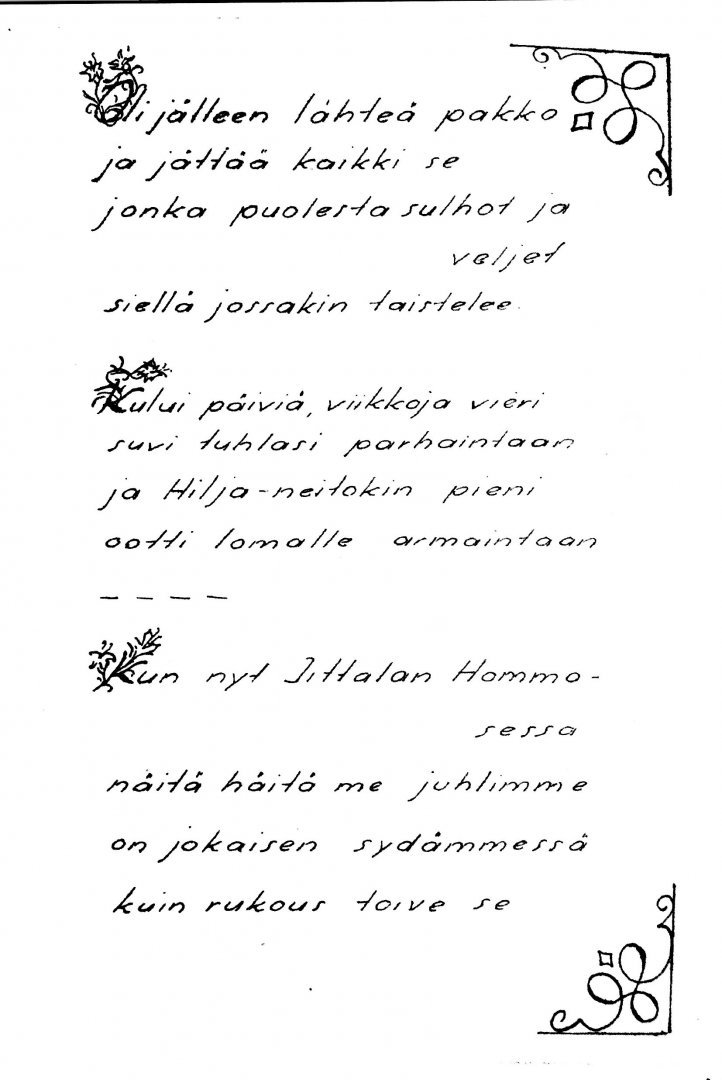 Oli jälleen lähteä pakko
ja jättää kaikki se
jonka puolesta sulhot ja
veljet
siellä jossakin taistelee.
Kului päiviä, viikkoja vieri
suvi tuhlasi parhaintaan
ja Hilja-neitokin pieni
ootti lomalle armaintaan
— — — —
Kun nyt Iittalan Hommo-
sessa
näitä häitä me juhlimme
on jokaisen sydämmessä
kuin rukous toive se